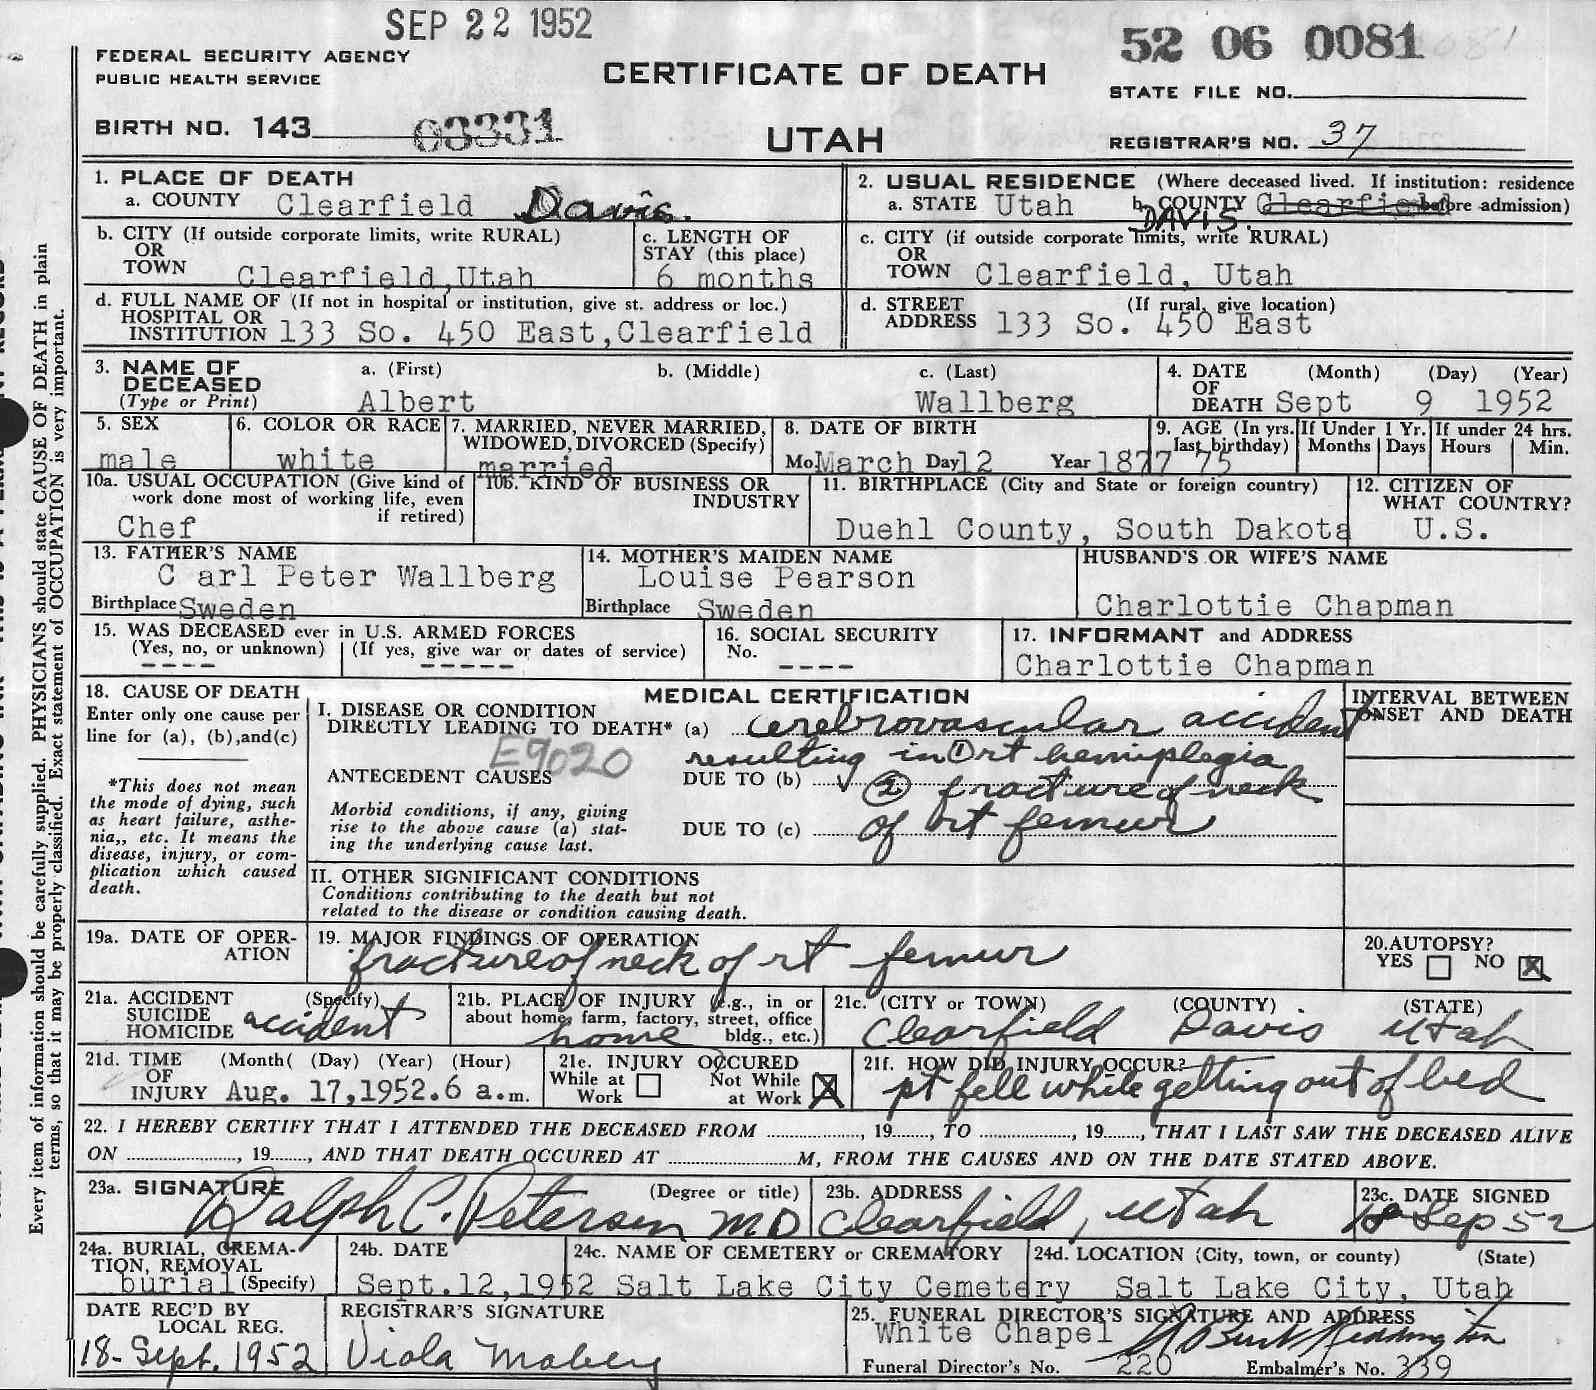 SEP 22 1952
52 06 0081
FEDERAL SECURITY AGENCY
PUBLIC HEALTH SERVICE
CERTIFICATE OF DEATH
STATE FILE NO.
BIRTH NO. 143 03331
UTAH
REGISTRAR'S NO. 37
1. PLACE OF DEATH
a. COUNTY Clearfield Davis.
2. USUAL RESIDENCE (Where deceased lived. If institution: residence before admission)
a. STATE Utah b. COUNTY Clearfield DAVIS.
b. CITY (If outside corporate limits, write RURAL)
OR
TOWN Clearfield,Utah
c. LENGTH OF
STAY (this place)
6 months
c. CITY (if outside corporate limits, write RURAL)
OR
TOWN Clearfield, Utah
d. FULL NAME OF (If not in hospital or institution, give st. address or loc.)
HOSPITAL OR
INSTITUTION 133 So. 450 East,Clearfield
d. STREET (If rural, give location)
ADDRESS 133 So. 450 East
3. NAME OF
DECEASED
(Type or Print)
a. (First) b. (Middle) c. (Last)
Albert Wallberg
4. DATE (Month) (Day) (Year)
OF
DEATH Sept 9 1952
5. SEX
male
6. COLOR OR RACE
white
7. MARRIED, NEVER MARRIED,
WIDOWED, DIVORCED (Specify)
married
8. DATE OF BIRTH
Mo. March Day 12 Year 1877
9. AGE (In yrs. last birthday) 75
If Under 1 Yr. Months Days
If under 24 hrs. Hours Min.
10a. USUAL OCCUPATION (Give kind of
work done most of working life, even
if retired)
Chef
10b. KIND OF BUSINESS OR
INDUSTRY
11. BIRTHPLACE (City and State or foreign country)
Duehl County, South Dakota
12. CITIZEN OF
WHAT COUNTRY?
U.S.
13. FATHER'S NAME
C arl Peter Wallberg
Birthplace Sweden
14. MOTHER'S MAIDEN NAME
Louise Pearson
Birthplace Sweden
HUSBAND'S OR WIFE'S NAME
Charlottie Chapman
15. WAS DECEASED ever in U.S. ARMED FORCES
(Yes, no, or unknown) (If yes, give war or dates of service)
---- -----
16. SOCIAL SECURITY
No. ----
17. INFORMANT and ADDRESS
Charlottie Chapman
18. CAUSE OF DEATH
Enter only one cause per
line for (a), (b),and(c)
*This does not mean
the mode of dying, such
as heart failure, asthe-
nia,, etc. It means the
disease, injury, or com-
plication which caused
death.
MEDICAL CERTIFICATION
INTERVAL BETWEEN
ONSET AND DEATH
I. DISEASE OR CONDITION
DIRECTLY LEADING TO DEATH* (a) cerebrovascular accident
E9020 resulting in ① rt hemiplegia
ANTECEDENT CAUSES DUE TO (b) ② fracture of neck
Morbid conditions, if any, giving
rise to the above cause (a) stat-
ing the underlying cause last.
DUE TO (c) of rt femur
II. OTHER SIGNIFICANT CONDITIONS
Conditions contributing to the death but not
related to the disease or condition causing death.
19a. DATE OF OPER-
ATION
19. MAJOR FINDINGS OF OPERATION
fracture of neck of rt femur
20. AUTOPSY?
YES NO X
21a. ACCIDENT (Specify)
SUICIDE
HOMICIDE accident
21b. PLACE OF INJURY (e.g., in or
about home, farm, factory, street, office
bldg., etc.)
home
21c. (CITY or TOWN) (COUNTY) (STATE)
Clearfield Davis Utah
21d. TIME (Month( (Day) (Year) (Hour)
OF
INJURY Aug. 17,1952.6 a.m.
21e. INJURY OCCURED
While at Work Not While at Work X
21f. HOW DID INJURY OCCUR?
pt fell while getting out of bed
22. I HEREBY CERTIFY THAT I ATTENDED THE DECEASED FROM ............, 19......, TO ............, 19......, THAT I LAST SAW THE DECEASED ALIVE
ON ............, 19......, AND THAT DEATH OCCURED AT ............M, FROM THE CAUSES AND ON THE DATE STATED ABOVE.
23a. SIGNATURE (Degree or title)
Ralph C. Petersen MD
23b. ADDRESS
Clearfield, Utah
23c. DATE SIGNED
18 Sep 52
24a. BURIAL, CREMA-
TION, REMOVAL
burial (Specify)
24b. DATE
Sept.12,1952
24c. NAME OF CEMETERY or CREMATORY
Salt Lake City Cemetery
24d. LOCATION (City, town, or county) (State)
Salt Lake City, Utah
DATE REC'D BY
LOCAL REG.
18-Sept. 1952
REGISTRAR'S SIGNATURE
Viola Moberg
25. FUNERAL DIRECTOR'S SIGNATURE AND ADDRESS
White Chapel
Funeral Director's No. 220 Embalmer's No. 339
Every item of information should be carefully supplied. PHYSICIANS should state CAUSE OF DEATH in plain
terms, so that it may be properly classified. Exact statement of OCCUPATION is very important.